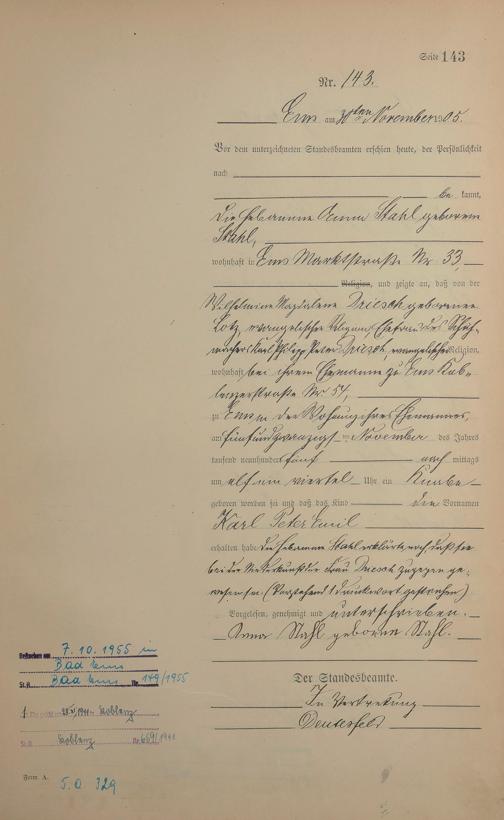 Seite 143
Nr. 143.
Ems am 30ten November 1905.
Vor dem unterzeichneten Standesbeamten erschien heute, der Persönlichkeit
nach
be kannt,
die Hebamme Anna Stahl geborene
Stahl,
wohnhaft in Ems Marktstraße Nr. 33,
Religion, und zeigte an, daß von der
Wilhelmine Magdalene Driesch geborenen
Lotz, evangelischer Religion, Ehefrau des Schuh-
machers Karl Philipp Peter Driesch, evangelischer Religion,
wohnhaft bei ihrem Ehemanne zu Ems Kob-
lenzerstraße Nr 54,
zu Ems in der Wohnung ihres Ehemannes,
am fünfundzwanzigsten November des Jahres
tausend neunhundert fünf nach mittags
um elf ein viertel Uhr ein Knabe
geboren worden sei und daß das Kind die Vornamen
Karl Peter Emil
erhalten habe. Die Hebamme Stahl erklärte noch daß sie
bei der Niederkunft der Frau Driesch zugegen ge-
wesen sei. (Vorstehend 1 Druckwort gestrichen)
Vorgelesen, genehmigt und unterschrieben.
Anna Stahl geborene Stahl.
Der Standesbeamte.
In Vertretung
7. 10. 1955 in
Bad Ems
St.A. Bad Ems Nr. 149/1955
Koblenz
St.A. Koblenz Nr. 669/1941
Form. A.